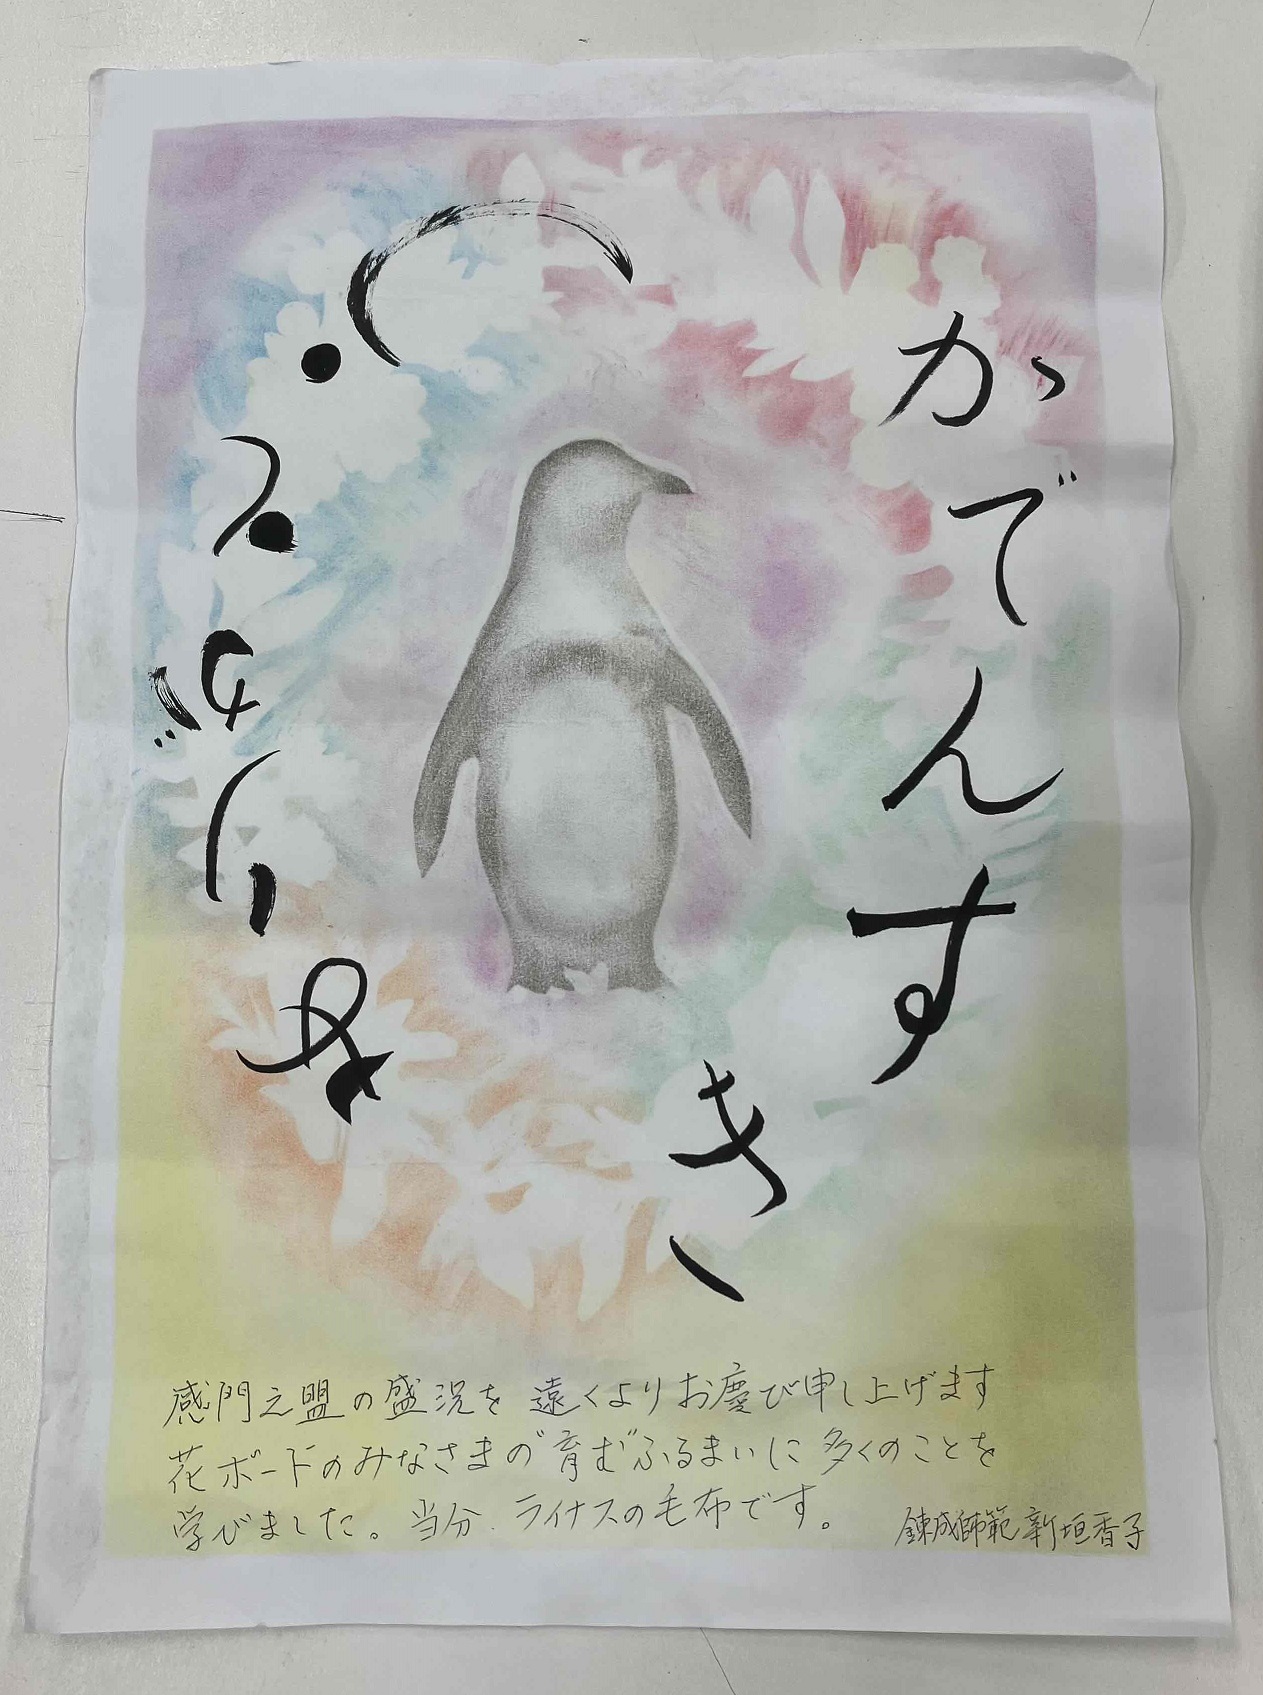 かでんすき
感門之盟の盛況を 遠くよりお慶び申し上げます
花ボードのみなさまの〝育む〟ふるまいに 多くのことを
学びました。当分、ライナスの毛布です。
錬成師範 新垣香子